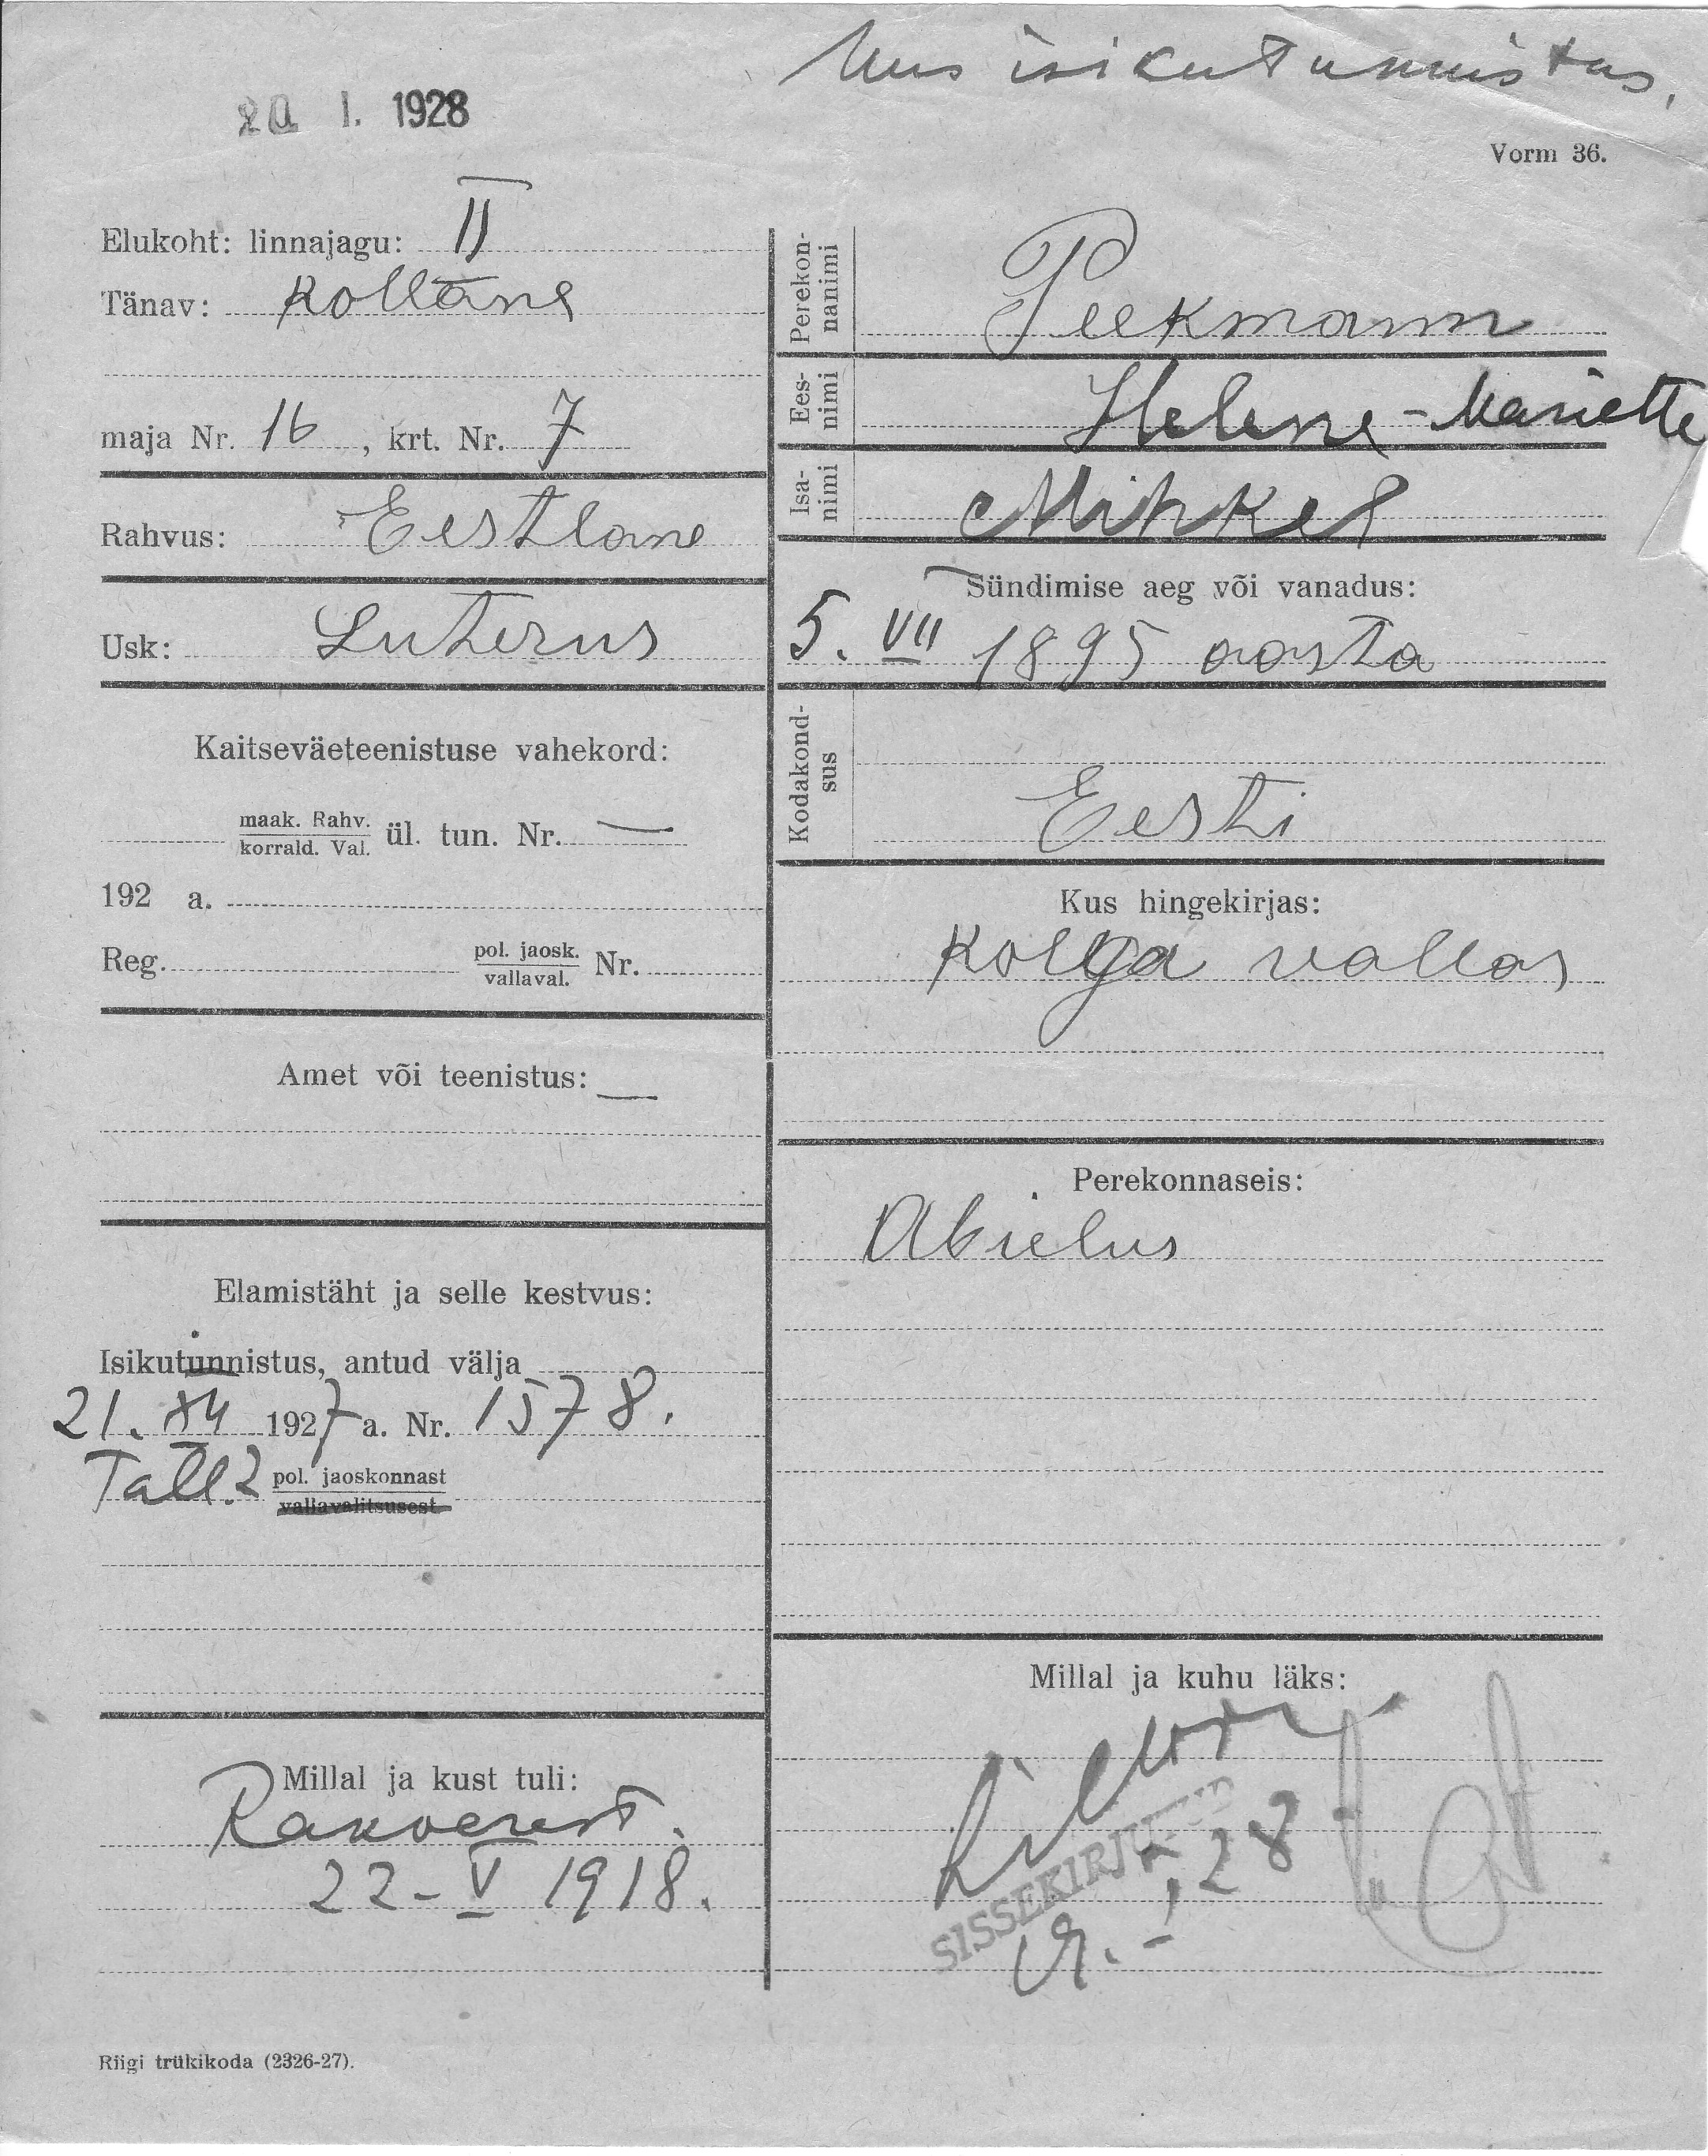 Uus isikutunnistus,
20 I. 1928
Vorm 36.
Elukoht: linnajagu: II
Tänav: Kollane
maja Nr. 16, krt. Nr. 7
Rahvus: Eestlane
Usk: Luterus
Kaitseväeteenistuse vahekord:
maak. Rahv.
korrald. Val. ül. tun. Nr. —
192 a.
Reg. pol. jaosk.
vallaval. Nr.
Amet või teenistus: —
Elamistäht ja selle kestvus:
Isikutunnistus, antud välja
21. XII 1927 a. Nr. 1578.
Tall. 2 pol. jaoskonnast
vallavalitsusest
Millal ja kust tuli:
Rakverest.
22-V 1918.
Riigi trükikoda (2326-27).
Perekon-
nanimi
Peekmann
Ees-
nimi
Helene-Mariette
Isa-
nimi
Mihkel
Sündimise aeg või vanadus:
5. VII 1895 aasta
Kodakond-
sus
Eesti
Kus hingekirjas:
Kolga vallas
Perekonnaseis:
Abielus
Millal ja kuhu läks:
SISSEKIRJUTUD
28